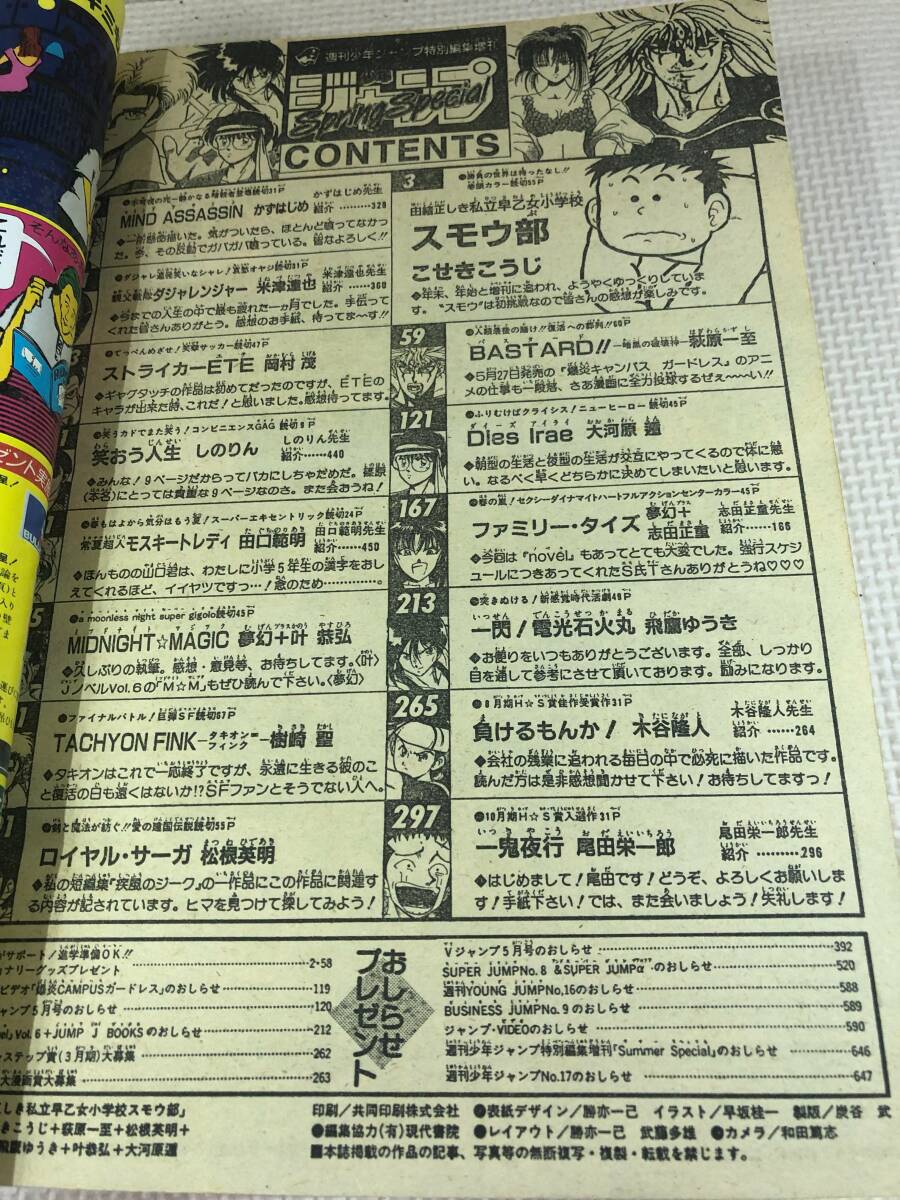 週刊少年ジャンプ特別編集増刊
ジャンプ
Spring Special
CONTENTS
3
●勝負の世界は待ったなし!!
巻頭カラー読切55P
由緒正しき私立早乙女小学校
スモウ部
こせきこうじ
◆年末、年始と増刊に追われ、ようやくゆっくりしていま
す。“スモウ”は初挑戦なので皆さんの感想が楽しみです。
59
●人類最後の賭け!!復活への葬列!!60P
BASTARD!! ―暗黒の破壊神― 萩原一至
◆5月27日発売の『爆炎キャンパス ガードレス』のアニ
メの仕事も一段落、さあ漫画に全力投球するぜぇ〜〜〜い!!
121
●ふりむけばクライシス!ニューヒーロー 読切45P
Dies Irae 大河原遁
◆朝型の生活と夜型の生活が交互にやってくるので体に悪
い。なるべく早くどちらかに決めてしまいたいと思います。
167
●春の嵐!セクシーダイナマイトハートフルアクションセンターカラー45P
ファミリー・タイズ 夢幻+志田正重
志田正重先生
紹介……166
◆今回は『novel』もあってとても大変でした。強行スケジ
ュールにつきあってくれたSETさんありがとうね♡♡♡
213
●突きぬける!新感覚時代活劇49P
一閃!電光石火丸 飛鷹ゆうき
◆お便りをいつもありがとうございます。全部、しっかり
目を通して参考にさせて頂いております。励みになります。
265
●8月期H☆S賞佳作受賞作31P
負けるもんか! 木谷隆人
木谷隆人先生
紹介……264
◆会社の残業に追われる毎日の中で必死に描いた作品です。
読んだ方は是非感想聞かせて下さい!お待ちしてますっ!
297
●10月期H☆S賞入選作31P
一鬼夜行 尾田栄一郎
尾田栄一郎先生
紹介………296
◆はじめまして!尾田です!どうぞ、よろしくお願いしま
す!手紙下さい!では、また会いましょう!失礼します!
MIND ASSASSIN かずはじめ
かずはじめ先生
紹介………328
た。今、その反動でガバガバ喰っている。皆なよろしく!!
米津達也
米津達也先生
紹介………360
◆今までの人生の中で最も疲れた一か月でした。手伝って
くれた皆さんありがとう。感想のお手紙、待ってま〜す!!
●てっぺんめざせ!笑撃サッカー読切47P
ストライカーETE 岡村茂
◆ギャグタッチの作品は初めてだったのですが、ETEの
キャラが出来た時、これだ!と思いました。感想待ってます。
●笑うカドでまた笑う!コンビニエンスGAG 読切9P
笑おう人生 しのりん
しのりん先生
紹介……440
◆みんな!9ページだからってバカにしちゃだめだ。篠原
(本名)にとっては貴重な9ページなのさ。また会おうね!
●春もはよから気分はもう夏!スーパーエキセントリック読切24P
常夏超人モスキートレディ 田口範明
田口範明先生
紹介……450
◆ほんものの山口君は、わたしに小学5年生の漢字をおし
えてくれるほど、イイヤツですっ…!念のため…………。
●a moonless night super gigolo読切45P
MIDNIGHT☆MAGIC 夢幻+叶恭弘
◆久しぶりの執筆。感想・意見等、お待ちしてます。〈叶〉
JノベルVol.6の『M☆M』もぜひ読んで下さい。〈夢幻〉
●ファイナルバトル!巨弾SF読切67P
TACHYON FINK―タキオンフィンク―樹崎聖
◆タキオンはこれで一応終了ですが、永遠に生きる彼のこ
と復活の日も遠くはないか!?SFファンとそうでない人へ。
●剣と魔法が紡ぐ!!愛の建国伝説読切55P
ロイヤル・サーガ 松根英明
◆私の短編集『疾風のジーク』の一作品にこの作品に関連す
る内容が記されています。ヒマを見つけて探してみよう!
おしらせ
プレゼント
がサポート/進学準備OK.!!
ョナリーグッズプレゼント……2・58
ビデオ『爆炎CAMPUSガードレス』のおしらせ……119
ャンプ5月号のおしらせ……120
vel』Vol.6+JUMP J BOOKSのおしらせ……212
ステップ賞(3月期)大募集……262
大漫画賞大募集……263
Vジャンプ5月号のおしらせ……392
SUPER JUMPNo.8&SUPER JUMPαのおしらせ……520
週刊YOUNG JUMPNo.16のおしらせ……588
BUSINESS JUMPNo.9のおしらせ……589
ジャンプ・VIDEOのおしらせ……590
週刊少年ジャンプ特別編集増刊『Summer Special』のおしらせ……646
週刊少年ジャンプNo.17のおしらせ……647
しき私立早乙女小学校スモウ部」
きこうじ+萩原一至+松根英明+
飛鷹ゆうき+叶恭弘+大河原遁
印刷/共同印刷株式会社 ●表紙デザイン/勝亦一己 イラスト/早坂桂一 製版/炭谷武
●編集協力(有)現代書院 ●レイアウト/勝亦一己 武藤多雄 ●カメラ/和田篤志
■本誌掲載の作品の記事、写真等の無断複写・複製・転載を禁じます。